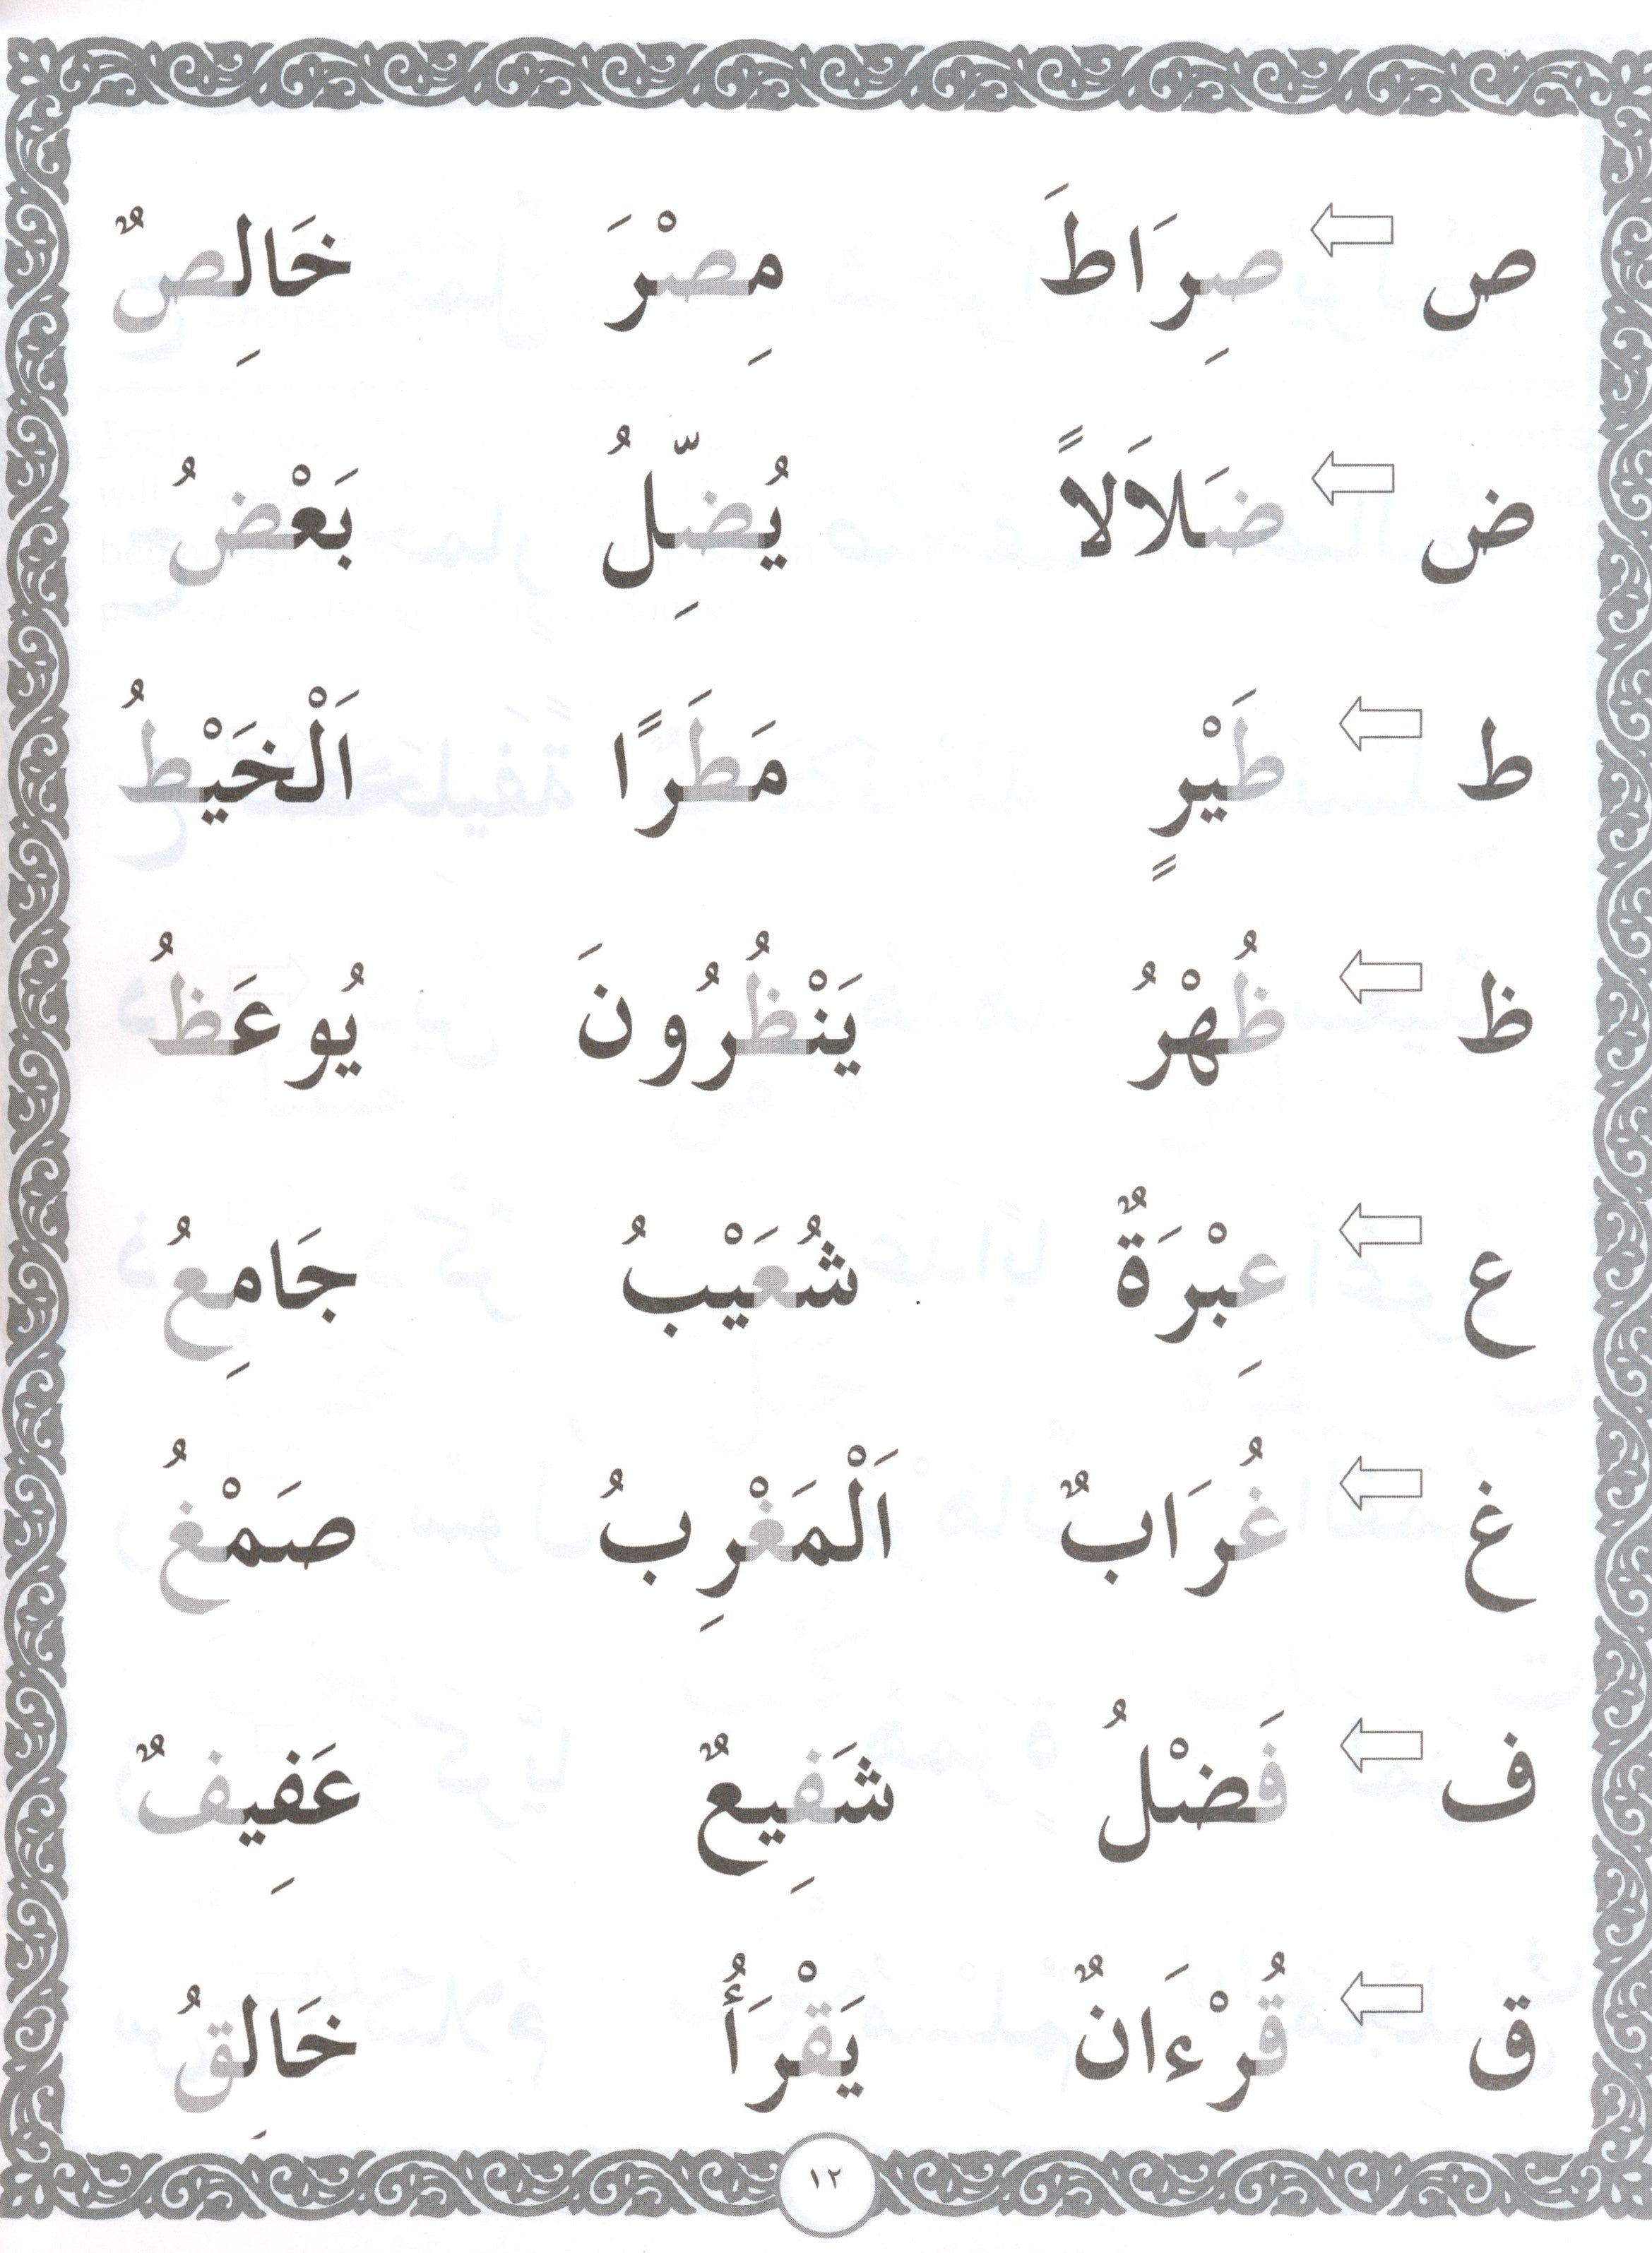 ص صِرَاطَ مِصْرَ خَالِصٌ
ض ضَلاَلاً يُضِلّٰلُ بَعْضُ
ط طَيْرٍ مَطَرًا اَلْخَيْطُ
ظ ظُهْرُ يَنْظُرُونَ يُوعَظُ
ع عِبْرَةٌ شُعَيْبُ جَامِعُ
غ غُرَابٌ اَلْمَغْرِبُ صَمْغُ
ف فَضْلُ شَفِيعٌ عَفِيفٌ
ق قُرْءَانٌ يَقْرَأُ خَالِقُ
١٢